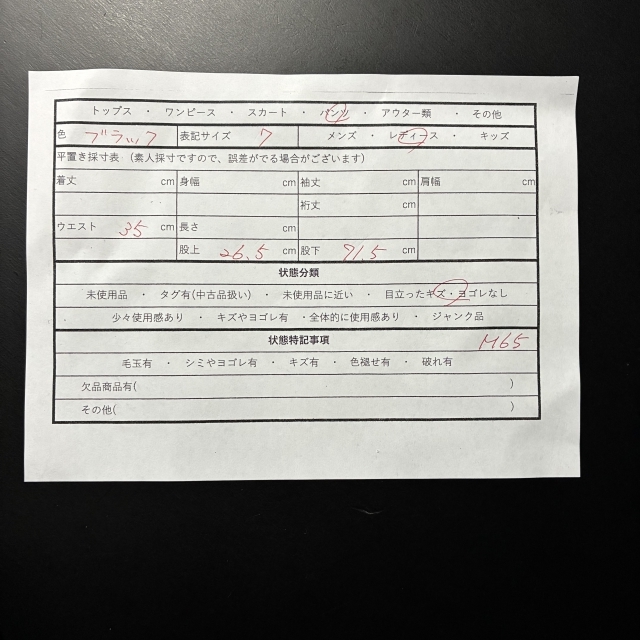 トップス ・ ワンピース ・ スカート ・ パンツ ・ アウター類 ・ その他
色 ブラック 表記サイズ 7 メンズ ・ レディース ・ キッズ
平置き採寸表（素人採寸ですので、誤差がでる場合がございます）
着丈 cm 身幅 cm 袖丈 cm 肩幅 cm
裄丈 cm
ウエスト 35 cm 長さ cm
股上 26.5 cm 股下 71.5 cm
状態分類
未使用品 ・ タグ有(中古品扱い) ・ 未使用品に近い ・ 目立ったキズ・ヨゴレなし
少々使用感あり ・ キズやヨゴレ有 ・全体的に使用感あり ・ ジャンク品
状態特記事項 M65
毛玉有 ・ シミやヨゴレ有 ・ キズ有 ・ 色褪せ有 ・ 破れ有
欠品商品有( )
その他( )